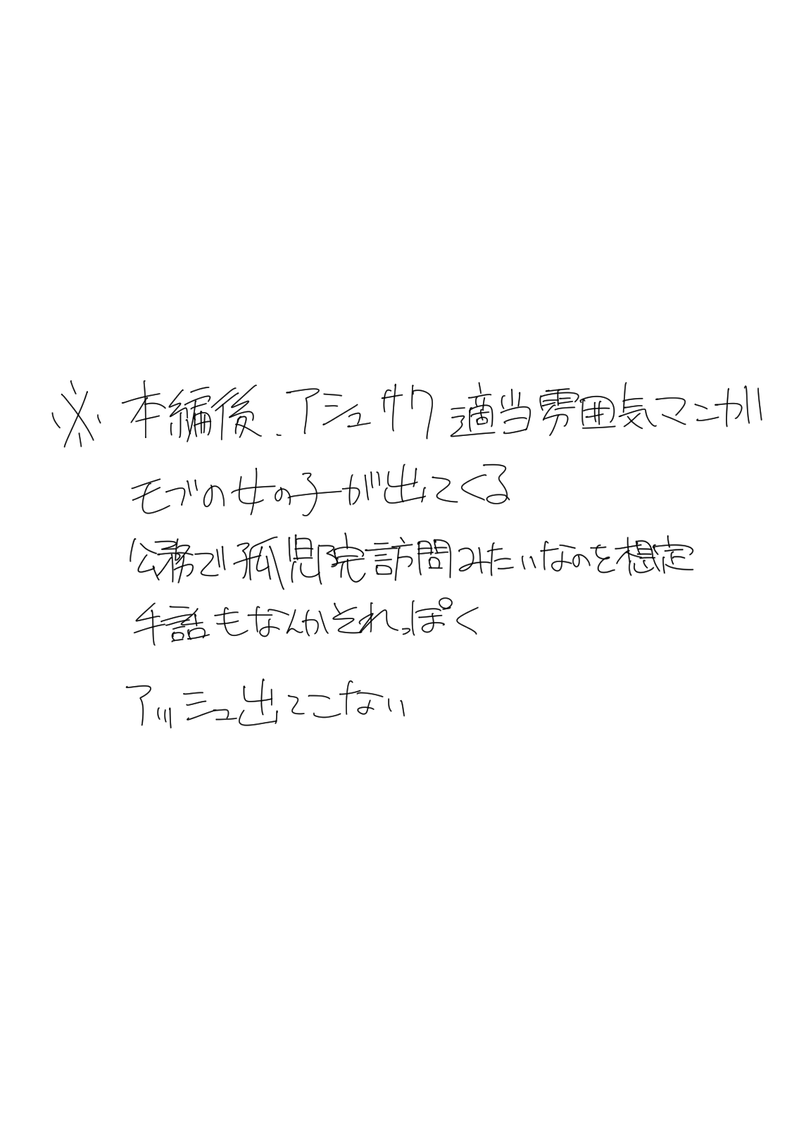 ※本編後、アシュサク適当雰囲気マンガ!!
モブの女の子が出てくる
公務で孤児院訪問みたいなのを想定
手話もなんかそれっぽく
アッシュ出てこない